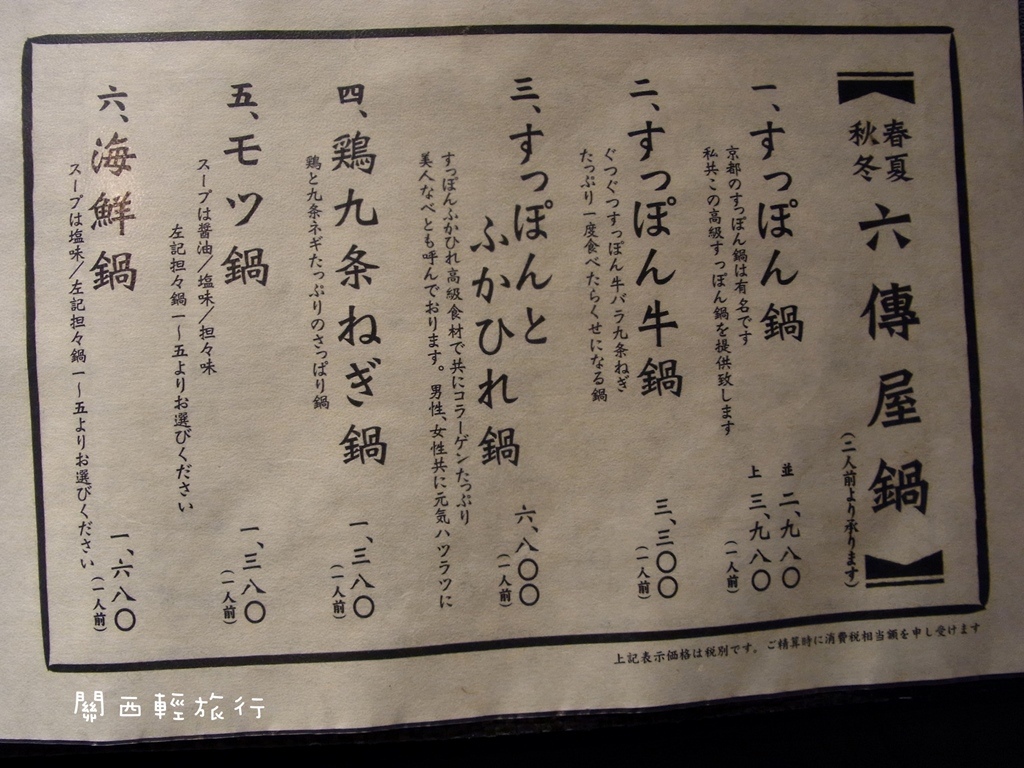 春夏
秋冬
六傳屋鍋
(二人前より承ります)
一、すっぽん鍋
京都のすっぽん鍋は有名です
私共この高級すっぽん鍋を提供致します
並 二、九八〇
上 三、九八〇
(一人前)
二、すっぽん牛鍋
ぐつぐつすっぽん牛バラ九条ねぎ
たっぷり一度食べたらくせになる鍋
三、三〇〇
(一人前)
三、すっぽんと
ふかひれ鍋
すっぽんふかひれ高級食材で共にコラーゲンたっぷり
美人なべとも呼んでおります。男性、女性共に元気ハツラツに
六、八〇〇
(一人前)
四、鶏九条ねぎ鍋
鶏と九条ネギたっぷりのさっぱり鍋
一、三八〇
(一人前)
五、モツ鍋
スープは醤油/塩味/担々味
左記担々鍋一~五よりお選びください
一、三八〇
(一人前)
六、海鮮鍋
スープは塩味/左記担々鍋一~五よりお選びください
一、六八〇
(一人前)
上記表示価格は税別です。ご精算時に消費税相当額を申し受けます
關西輕旅行